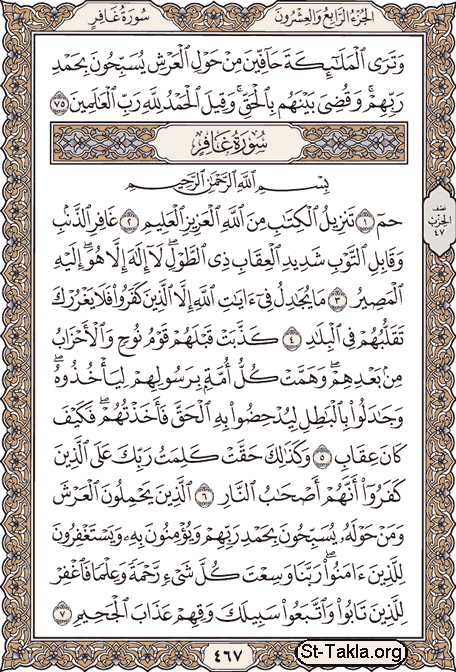 الجزء الرابع والعشرون
سورة غافر
وَتَرَى ٱلْمَلَٰٓئِكَةَ حَآفِّينَ مِنْ حَوْلِ ٱلْعَرْشِ يُسَبِّحُونَ بِحَمْدِ
رَبِّهِمْ ۖ وَقُضِىَ بَيْنَهُم بِٱلْحَقِّ وَقِيلَ ٱلْحَمْدُ لِلَّهِ رَبِّ ٱلْعَٰلَمِينَ ٧٥
سُورَةُ غَافِرٍ
بِسْمِ ٱللَّهِ ٱلرَّحْمَٰنِ ٱلرَّحِيمِ
حمٓ ١ تَنزِيلُ ٱلْكِتَٰبِ مِنَ ٱللَّهِ ٱلْعَزِيزِ ٱلْعَلِيمِ ٢ غَافِرِ ٱلذَّنۢبِ
وَقَابِلِ ٱلتَّوْبِ شَدِيدِ ٱلْعِقَابِ ذِى ٱلطَّوْلِ ۖ لَآ إِلَٰهَ إِلَّا هُوَ ۖ إِلَيْهِ
ٱلْمَصِيرُ ٣ مَا يُجَٰدِلُ فِىٓ ءَايَٰتِ ٱللَّهِ إِلَّا ٱلَّذِينَ كَفَرُوا۟ فَلَا يَغْرُرْكَ
تَقَلُّبُهُمْ فِى ٱلْبِلَٰدِ ٤ كَذَّبَتْ قَبْلَهُمْ قَوْمُ نُوحٍ وَٱلْأَحْزَابُ
مِنۢ بَعْدِهِمْ ۖ وَهَمَّتْ كُلُّ أُمَّةٍۭ بِرَسُولِهِمْ لِيَأْخُذُوهُ ۖ
وَجَٰدَلُوا۟ بِٱلْبَٰطِلِ لِيُدْحِضُوا۟ بِهِ ٱلْحَقَّ فَأَخَذْتُهُمْ ۖ فَكَيْفَ
كَانَ عِقَابِ ٥ وَكَذَٰلِكَ حَقَّتْ كَلِمَتُ رَبِّكَ عَلَى ٱلَّذِينَ
كَفَرُوٓا۟ أَنَّهُمْ أَصْحَٰبُ ٱلنَّارِ ٦ ٱلَّذِينَ يَحْمِلُونَ ٱلْعَرْشَ
وَمَنْ حَوْلَهُۥ يُسَبِّحُونَ بِحَمْدِ رَبِّهِمْ وَيُؤْمِنُونَ بِهِۦ وَيَسْتَغْفِرُونَ
لِلَّذِينَ ءَامَنُوا۟ رَبَّنَا وَسِعْتَ كُلَّ شَىْءٍ رَّحْمَةً وَعِلْمًا فَٱغْفِرْ
لِلَّذِينَ تَابُوا۟ وَٱتَّبَعُوا۟ سَبِيلَكَ وَقِهِمْ عَذَابَ ٱلْجَحِيمِ ٧
نصف
الحزب
٤٧
٤٦٧
St-Takla.org